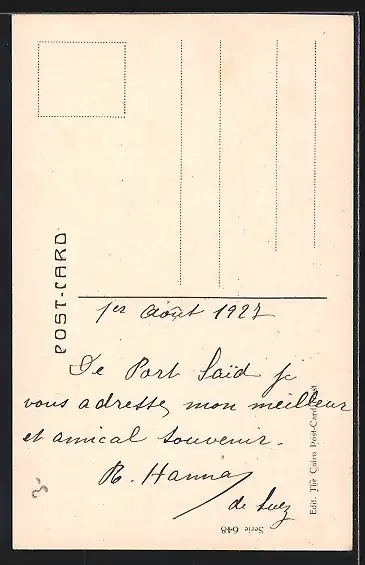 POST-CARD
1er Août 1927
De Port Saïd je
vous adresse, mon meilleur
et amical souvenir.
R. Hanna
de Suez
Edit. The Cairo Post-Card
Serie 648
3-